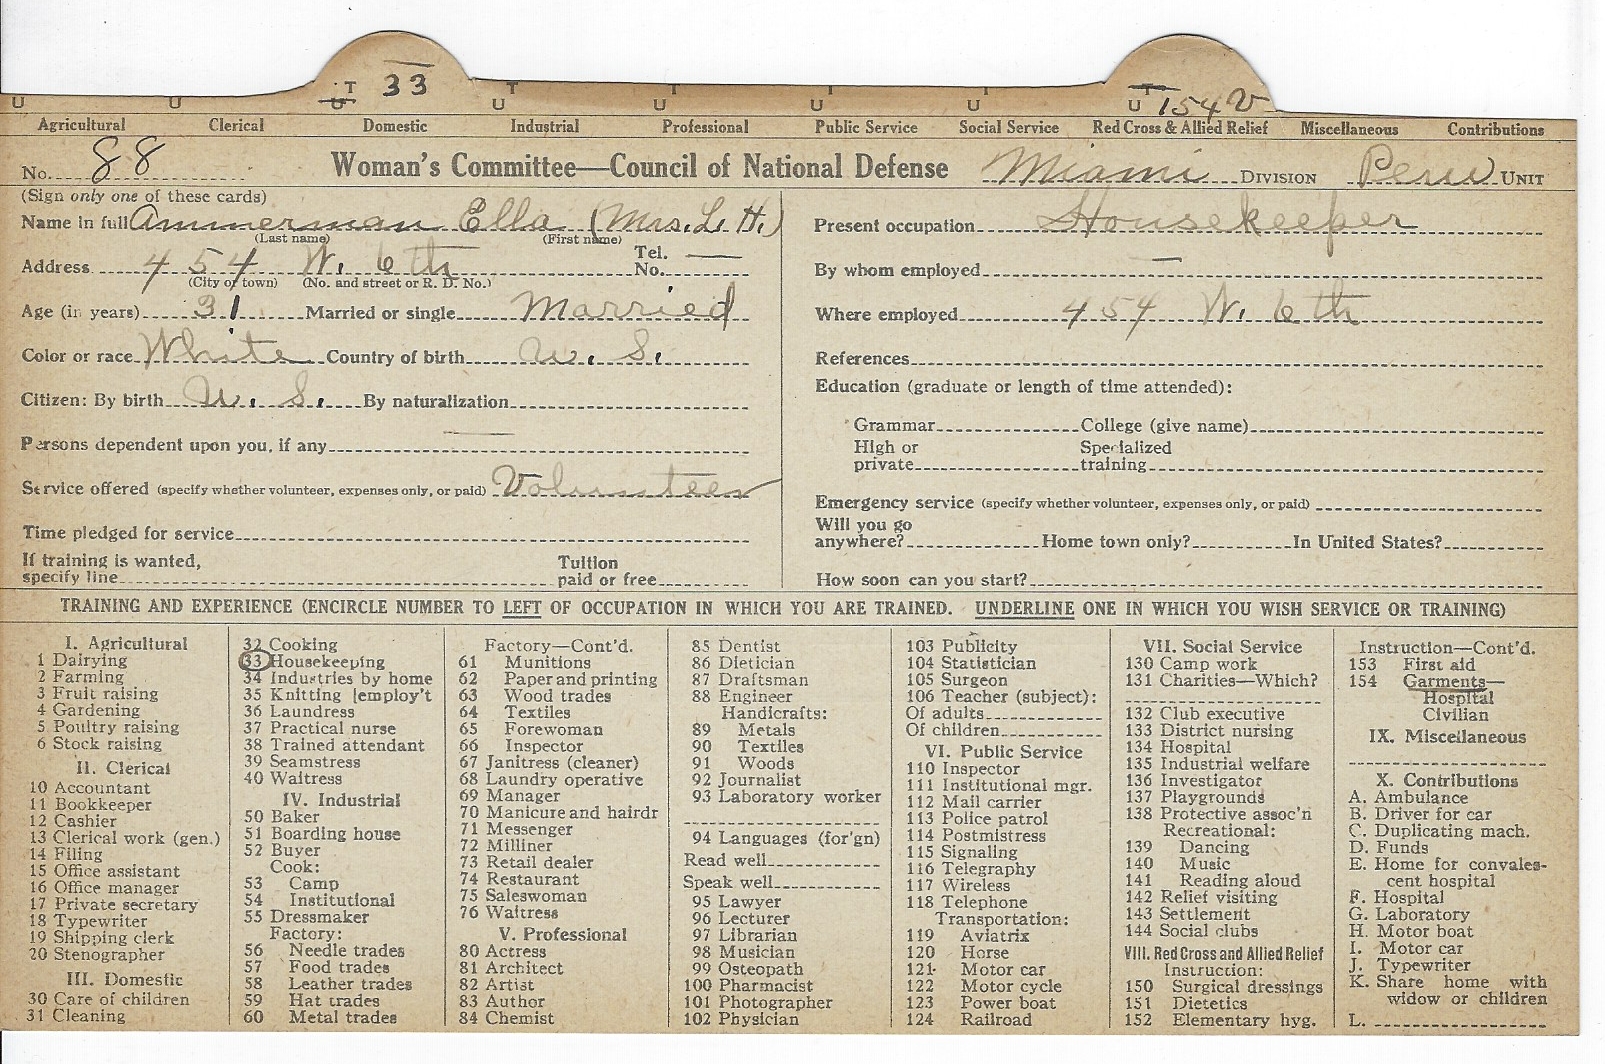 T 33
U U U T U T U T U T U T U 154 V
Agricultural Clerical Domestic Industrial Professional Public Service Social Service Red Cross & Allied Relief Miscellaneous Contributions
No. 88 Woman's Committee—Council of National Defense Miami DIVISION Peru UNIT
(Sign only one of these cards)
Name in full Ammerman Ella (Mrs. L. H.)
(Last name) (First name)
Address 454 W. 6th Tel. No. —
(City or town) (No. and street or R. D. No.)
Age (in years) 31 Married or single Married
Color or race White Country of birth U. S.
Citizen: By birth U. S. By naturalization
Persons dependent upon you, if any —
Service offered (specify whether volunteer, expenses only, or paid) Volunteer
Time pledged for service
If training is wanted,
specify line Tuition paid or free
Present occupation Housekeeper
By whom employed —
Where employed 454 W. 6th
References
Education (graduate or length of time attended):
Grammar College (give name)
High or private Specialized training
Emergency service (specify whether volunteer, expenses only, or paid)
Will you go
anywhere? Home town only? In United States?
How soon can you start?
TRAINING AND EXPERIENCE (ENCIRCLE NUMBER TO LEFT OF OCCUPATION IN WHICH YOU ARE TRAINED. UNDERLINE ONE IN WHICH YOU WISH SERVICE OR TRAINING)
I. Agricultural
1 Dairying
2 Farming
3 Fruit raising
4 Gardening
5 Poultry raising
6 Stock raising
II. Clerical
10 Accountant
11 Bookkeeper
12 Cashier
13 Clerical work (gen.)
14 Filing
15 Office assistant
16 Office manager
17 Private secretary
18 Typewriter
19 Shipping clerk
20 Stenographer
III. Domestic
30 Care of children
31 Cleaning
32 Cooking
33 Housekeeping
34 Industries by home
35 Knitting [employ't
36 Laundress
37 Practical nurse
38 Trained attendant
39 Seamstress
40 Waitress
IV. Industrial
50 Baker
51 Boarding house
52 Buyer
Cook:
53 Camp
54 Institutional
55 Dressmaker
Factory:
56 Needle trades
57 Food trades
58 Leather trades
59 Hat trades
60 Metal trades
Factory—Cont'd.
61 Munitions
62 Paper and printing
63 Wood trades
64 Textiles
65 Forewoman
66 Inspector
67 Janitress (cleaner)
68 Laundry operative
69 Manager
70 Manicure and hairdr
71 Messenger
72 Milliner
73 Retail dealer
74 Restaurant
75 Saleswoman
76 Waitress
V. Professional
80 Actress
81 Architect
82 Artist
83 Author
84 Chemist
85 Dentist
86 Dietician
87 Draftsman
88 Engineer
Handicrafts:
89 Metals
90 Textiles
91 Woods
92 Journalist
93 Laboratory worker
94 Languages (for'gn)
Read well
Speak well
95 Lawyer
96 Lecturer
97 Librarian
98 Musician
99 Osteopath
100 Pharmacist
101 Photographer
102 Physician
103 Publicity
104 Statistician
105 Surgeon
106 Teacher (subject):
Of adults
Of children
VI. Public Service
110 Inspector
111 Institutional mgr.
112 Mail carrier
113 Police patrol
114 Postmistress
115 Signaling
116 Telegraphy
117 Wireless
118 Telephone
Transportation:
119 Aviatrix
120 Horse
121 Motor car
122 Motor cycle
123 Power boat
124 Railroad
VII. Social Service
130 Camp work
131 Charities—Which?
132 Club executive
133 District nursing
134 Hospital
135 Industrial welfare
136 Investigator
137 Playgrounds
138 Protective assoc'n
Recreational:
139 Dancing
140 Music
141 Reading aloud
142 Relief visiting
143 Settlement
144 Social clubs
VIII. Red Cross and Allied Relief
Instruction:
150 Surgical dressings
151 Dietetics
152 Elementary hyg.
Instruction—Cont'd.
153 First aid
154 Garments—
Hospital
Civilian
IX. Miscellaneous
X. Contributions
A. Ambulance
B. Driver for car
C. Duplicating mach.
D. Funds
E. Home for convales-
cent hospital
F. Hospital
G. Laboratory
H. Motor boat
I. Motor car
J. Typewriter
K. Share home with
widow or children
L.